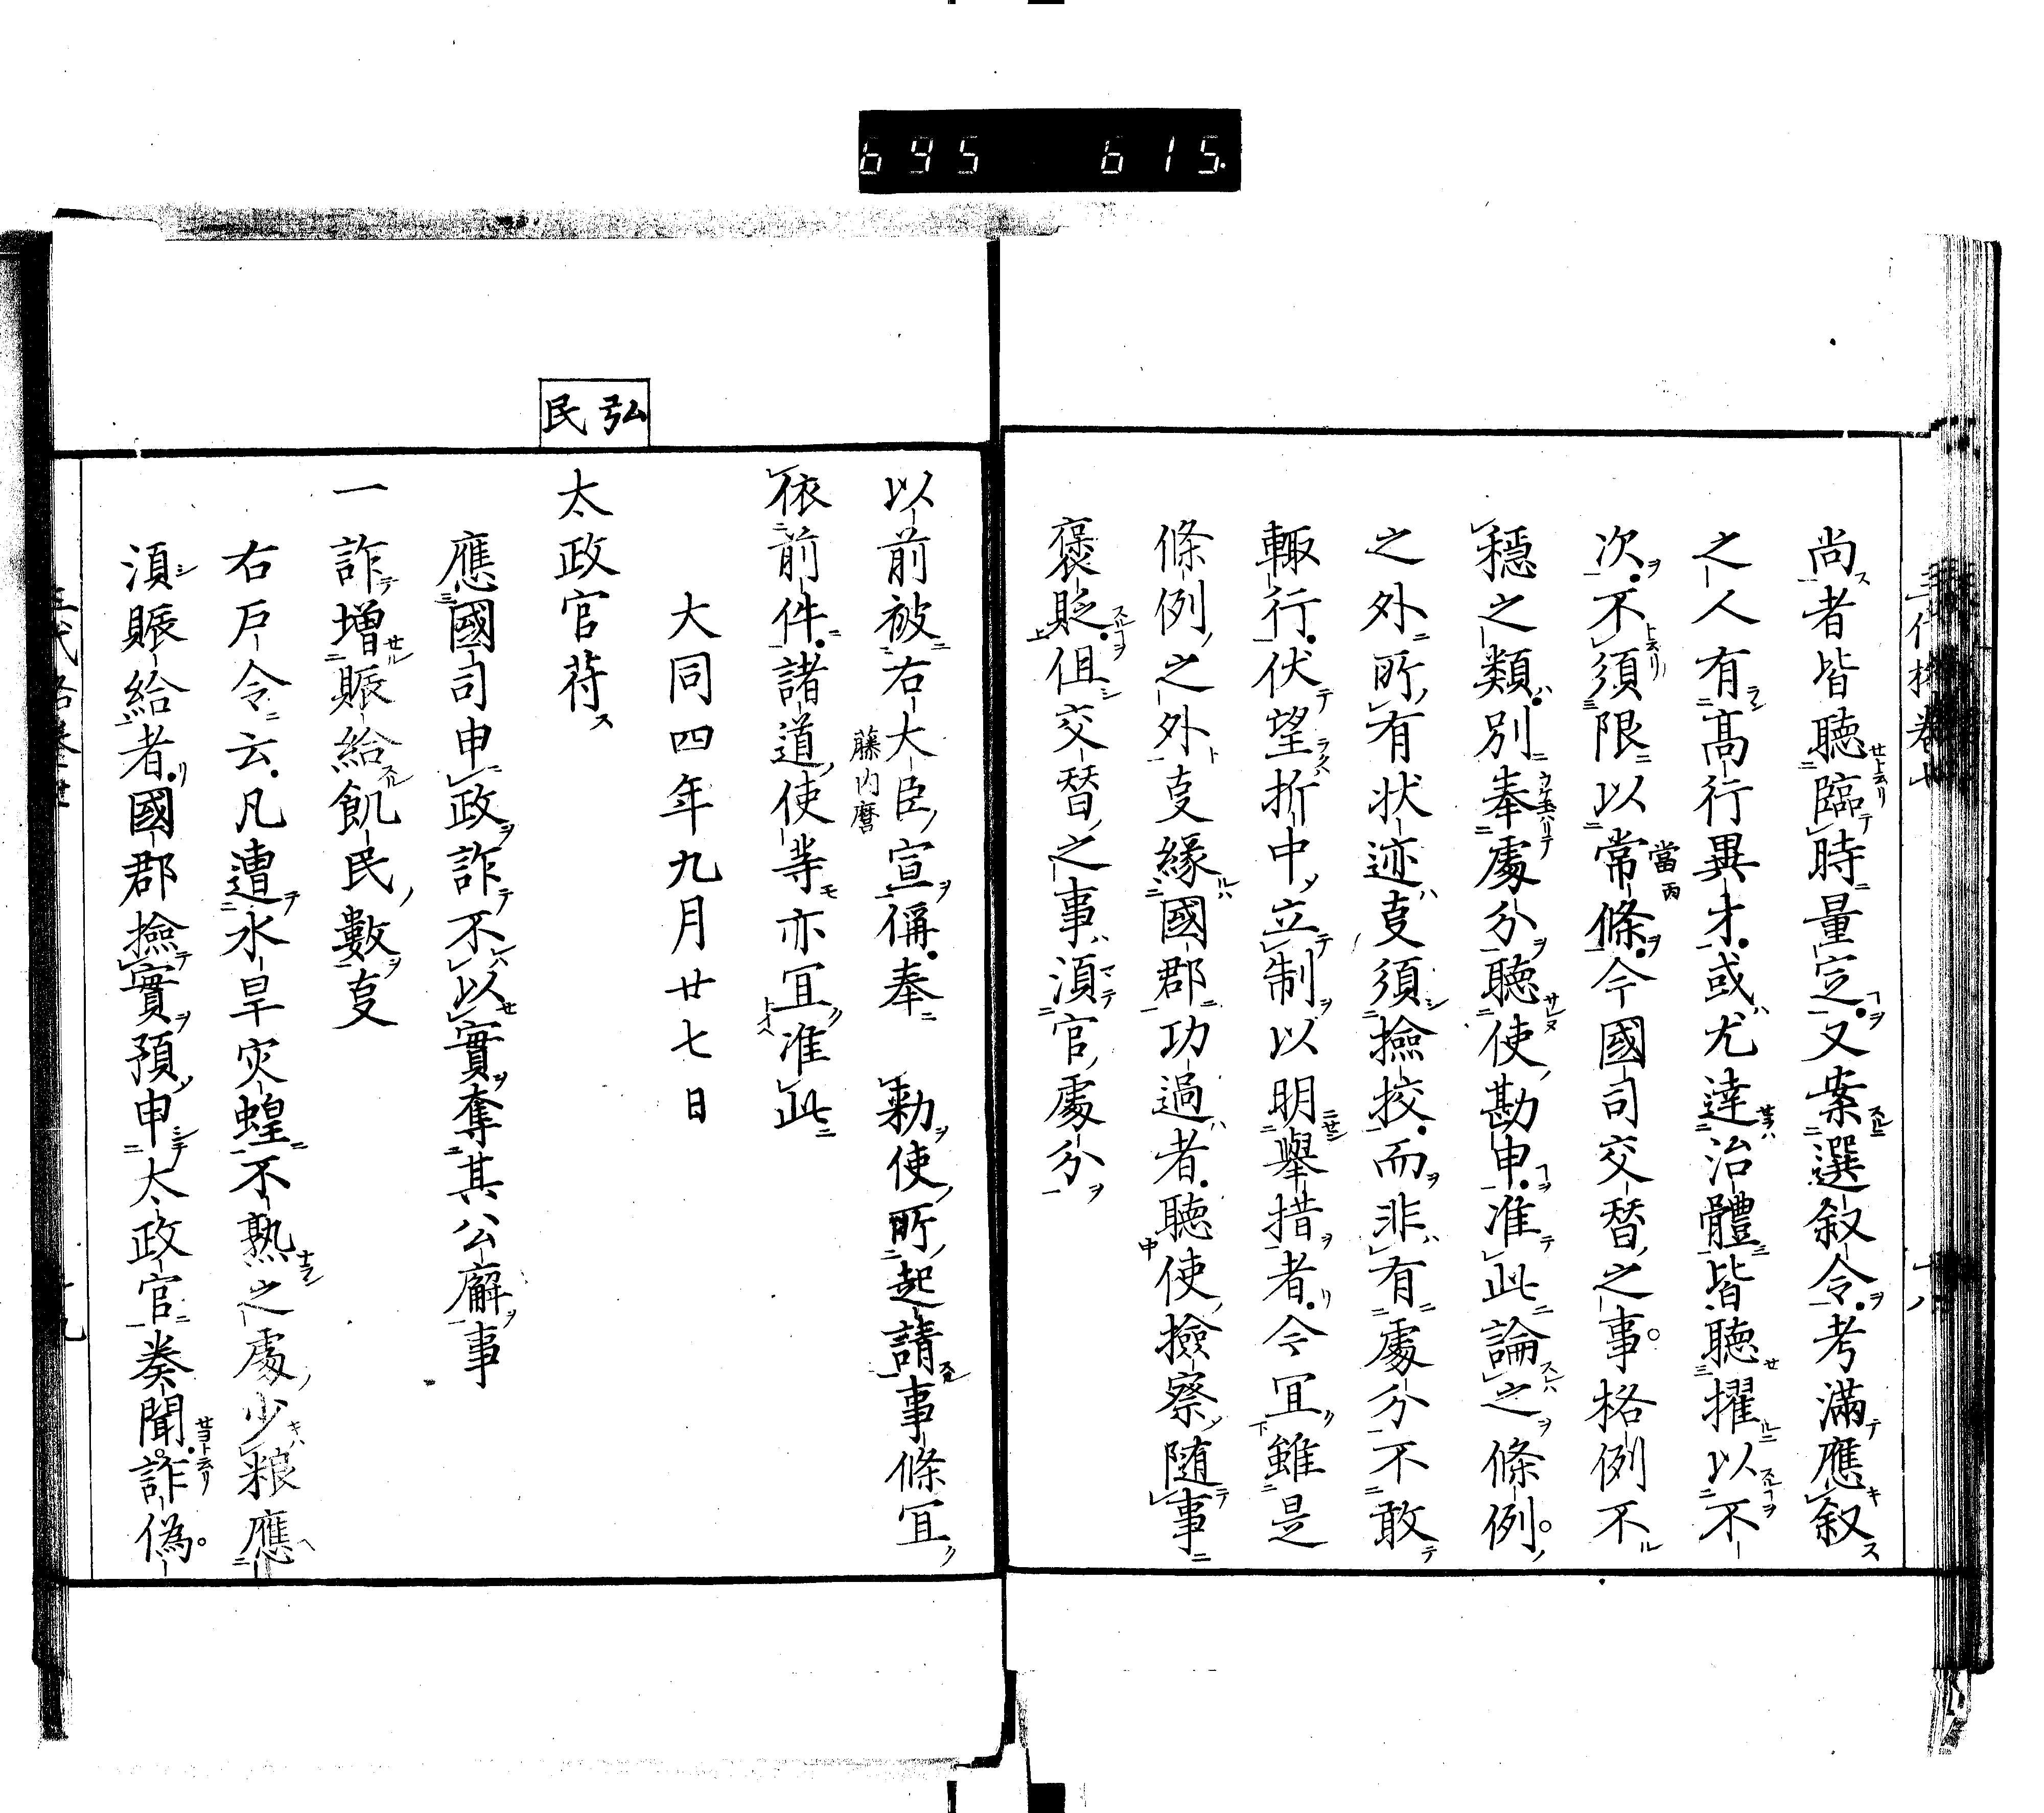 695 615.
尚者皆聽臨時量定又案選叙令考滿應叙
之人有髙行異才或尤達治體皆聽擢以不
次不須限以常條今國司交替之事格例不
當丙
穩之類別奉處分聽使勘申准此論之條例
之外所有状迹支須撿挍而非有處分不敢
輙行伏望折中立制以明擧措者今冝雖是
條例之外支縁國郡功過者聽使撿察随事
褒貶但交替之事湏官處分
以前被右大臣宣偁奉 勅使所起請事條冝
藤内麿
依前件諸道使等亦冝准此
大同四年九月廿七日
弘民
太政官苻
應國司申政詐不以實奪其公廨事
一詐増賑給飢民數支
右戸令云凡遭水旱灾蝗不熟之處少粮應
湏賑給者國郡撿實預申太政官奏聞詐偽